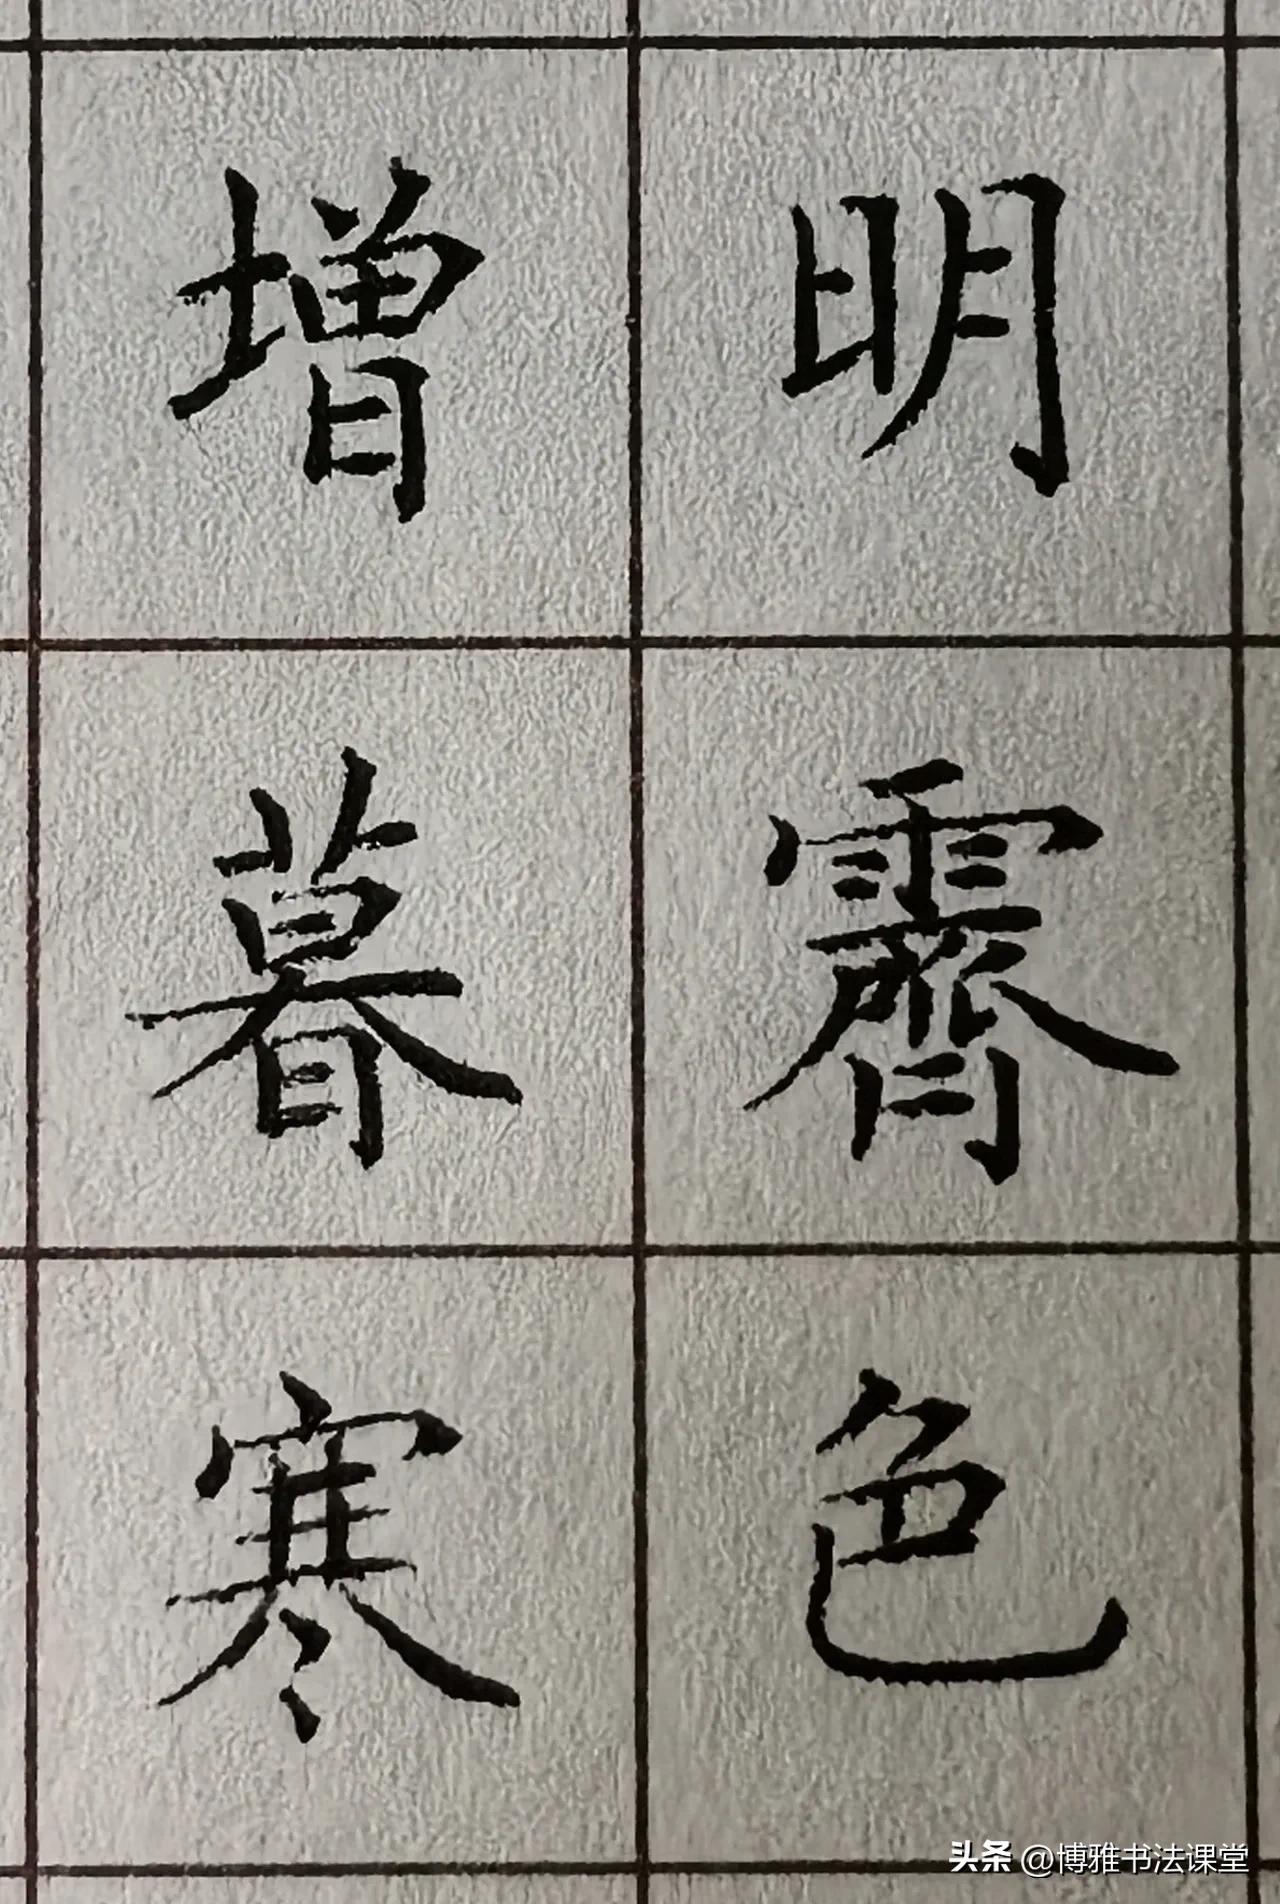 明霽色
增暮寒
头条 @博雅书法课堂